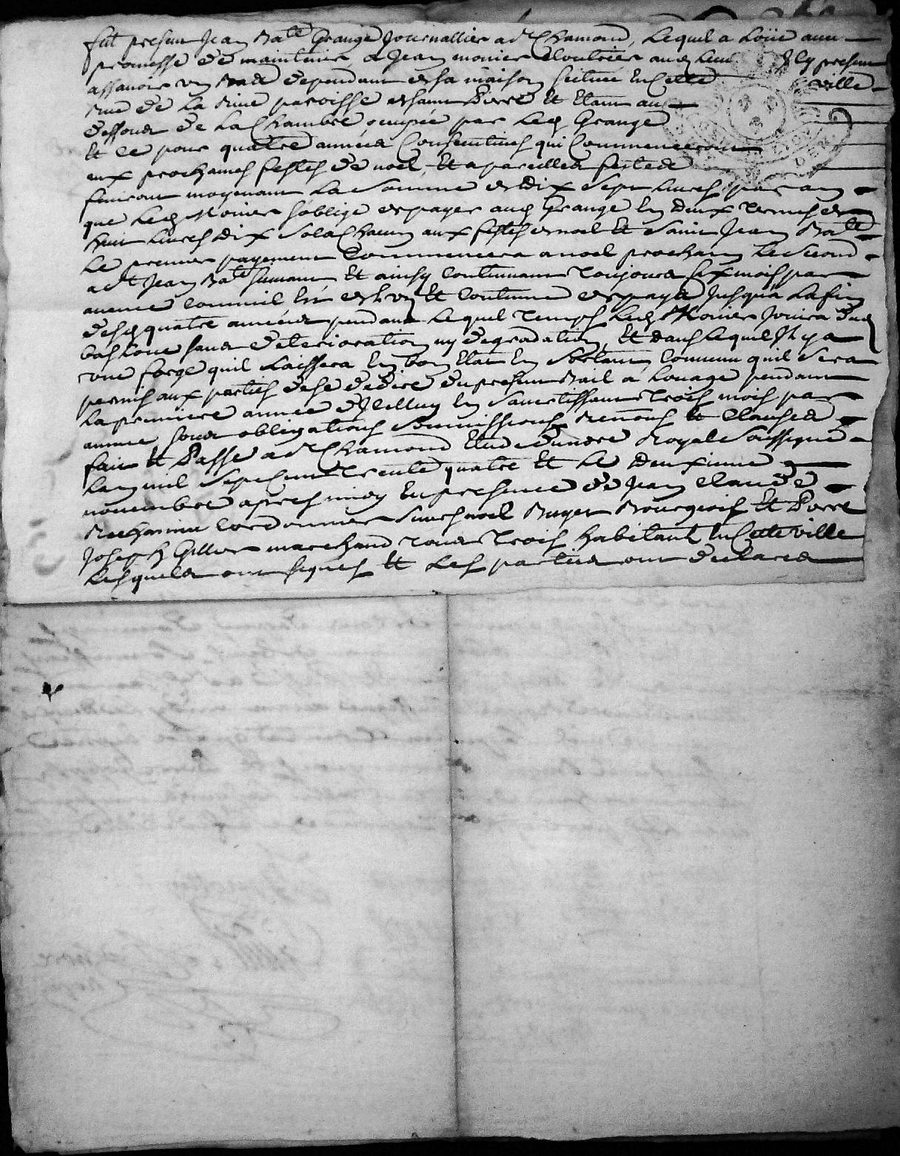 fut present Jean Bate Grange Journallier a St Chamond, Lequel a Loüé avec
promesse de maintenir, a Jean monier Cloutier aud Lieu Icy present
assavoir un dependant de sa maison scituée En Cette ville
rue de La paroisse de saint Pierre Et Etant au
dessous de La Chambre occupée par Led Grange
Et ce pour quatre années Consecutives qui Commenceront
aux prochaines festes de noel, Et a pareilles festes
finiront moyenant La somme de dix sept Livres par an
que Led Monier s'oblige de payer aud Grange En deux termes de
huit Livres dix sols Chacun aux festes de noel Et saint Jean Bate
Le premier payement Commencera a noel prochain Le second
a St Jean Bate suivant Et ainsy Continuant toujours six mois par
avance comme il Est de Et Coutume de payer Jusqu'a La fin
desd quatre années pendant Lequel temps Led Monier Jouira dud
bas Loué sans deterioration ny degradation, Et dans Lequel Il y a
une forge qu'il Laissera En bon Etat En sortant, Convenu qu'il sera
permis aux parties de se dedire du present Bail a Louage pendant
La premiere année d'Icelluy En s'avertissant trois mois par
avance sous obligations soumissions Renons Et clauses
fait Et Passé a St Chamond Etude de notre Royal soussigné
Lan mil sept cent trente quatre Et Le deuxieme
novembre apres midy En presence de Jean Claude
Cordonnier sieur noel Royer Bourgeois Et Pierre
Joseph Gillier marchand tous trois habitant En Cette ville
Lesquels ont signés Et Les parties ont declaré